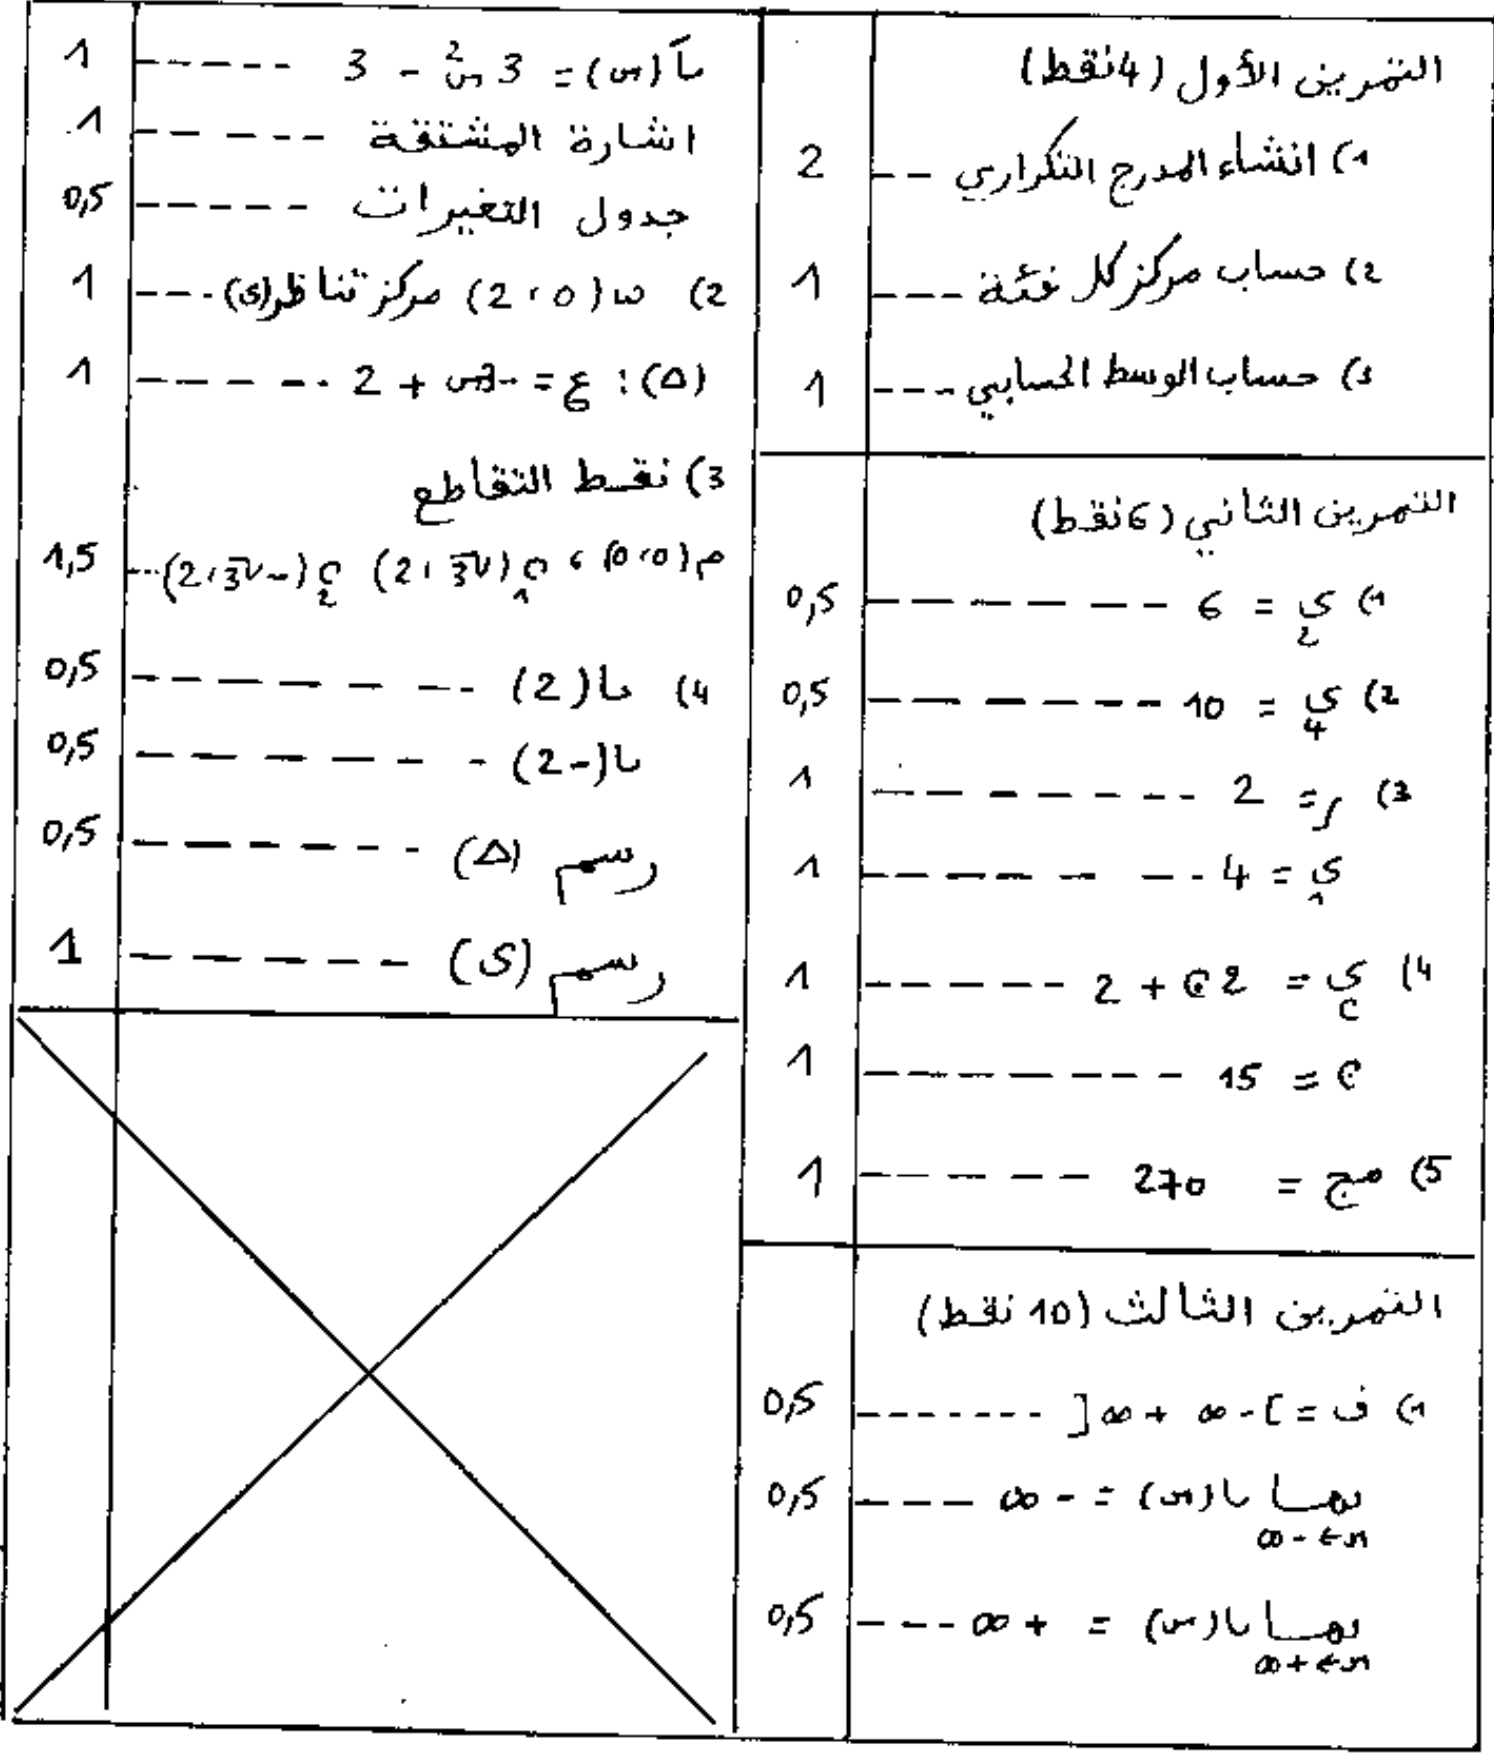 التمرين الأول (4نقط)
1) انشاء المدرج التكراري -- 2
2) حساب مركز كل فئة ---- 1
3) حساب الوسط الحسابي --- 1
التمرين الثاني (6نقط)
1) ي2 = 6 -------- 0,5
2) ي4 = 10 -------- 0,5
3) ر = 2 -------- 1
ي1 = 4 -------- 1
4) ين = 2ن + 2 ------ 1
ن = 15 -------- 1
5) مج = 270 ------ 1
التمرين الثالث (10 نقط)
1) ف = ]-∞ +∞[ ------- 0,5
نهــا تا(س) = -∞ ---- 0,5
س→-∞
نهــا تا(س) = +∞ ---- 0,5
س→+∞
تاَ(س) = 3س² - 3 ----- 1
اشارة المشتقة ------ 1
جدول التغيرات ----- 0,5
2) ω(2،0) مركز تناظر(ي) ---- 1
(Δ): ع = -3س + 2 ------ 1
3) نقـط التقاطع
م(0،0) ، ن1(√3، 2) ن2(-√3، 2) --- 1,5
4) تا(2) -------- 0,5
تا(-2) -------- 0,5
رسم (Δ) ------- 0,5
رسم (ي) ------- 1